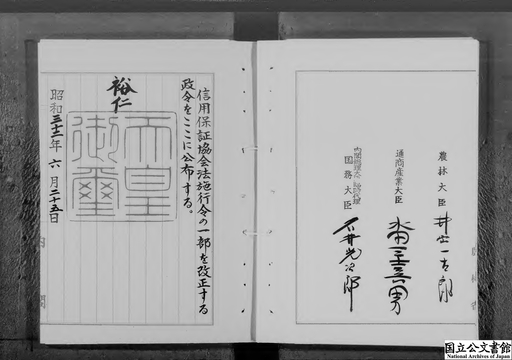 農林大臣 井出一太郎
通商産業大臣 水田三喜男
内閣総理大臣臨時代理
国務大臣 石井光次郎
信用保証協会法施行令の一部を改正する
政令をここに公布する。
裕仁
天皇
御璽
昭和三十二年六月二十五日
内閣
国立公文書館
National Archives of Japan